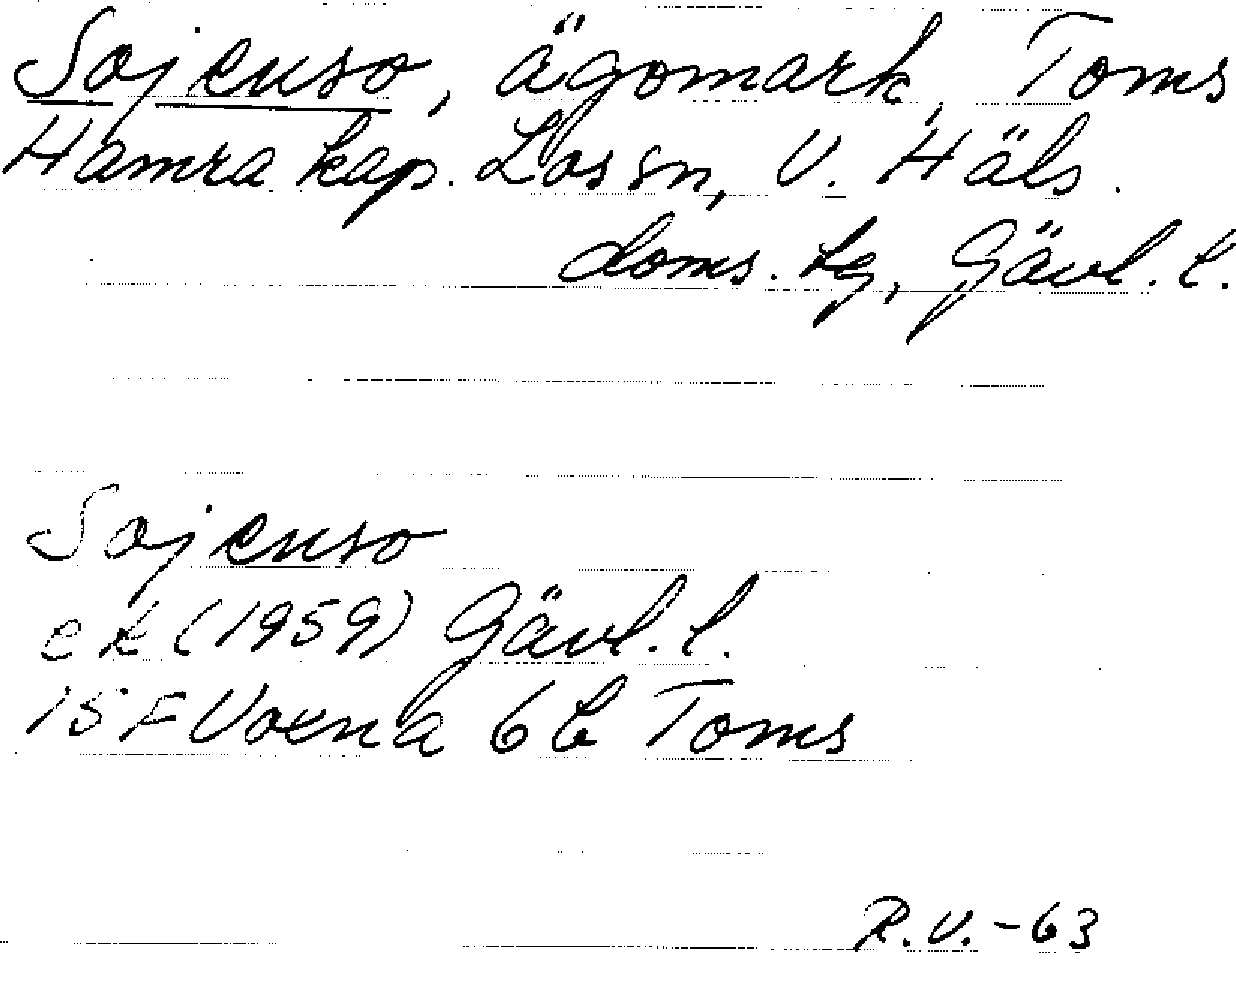 Sojenso, ägomark, Toms
Hamra kap. Los sn, V. Häls.
doms. tg, Gävl. l.
Sojenso
ek (1959) Gävl. l.
15 F Voxna 6 b Toms
R.V.-63